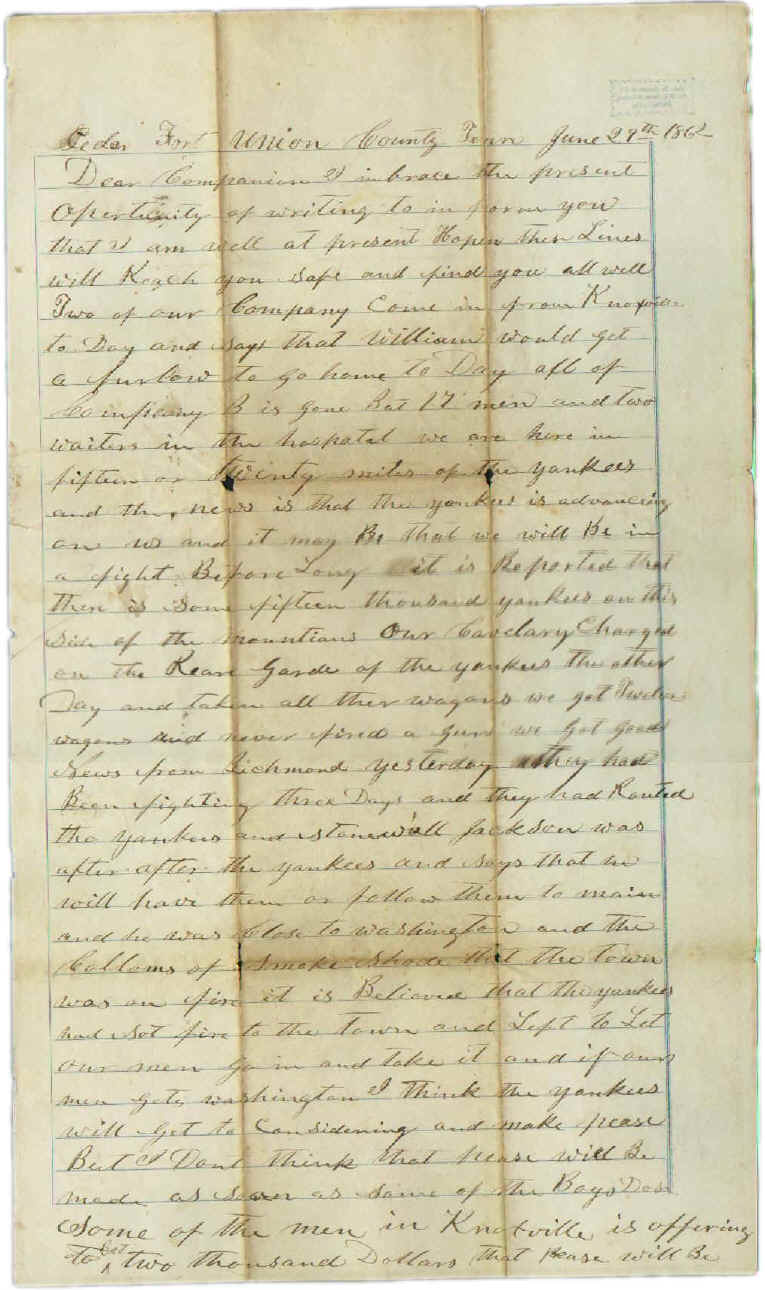 Ceder Fort Union County Tenn June 29th 1862
Dear Companion I inbrace the present
Opertunity of writing to in form you
that I am well at present Hopen thes Lines
will Reach you safe and find you all well
Two of our Company Come in from Knoxville
to Day and says that William would get
a furlow to go home to Day all of
Compeany B is gone But 17 men and two
waiters in the hospatal we are here in
fifteen or twenty miles of the yankees
and the news is that the yankees is advancing
on us and it may Be that we will Be in
a fight Before Long it is Reported that
then is some fifteen thousand yankees on this
side of the mountians Our Cavelary Charged
on the Reare Garde of the yankees the other
Day and taken all ther wagons we got Twelve
wagons and never fired a gun we Got good
News from Richmond yesterday they had
Been fighting three Days and they had Routed
the yankees and stonewall Jackson was
after after the yankees and says that he
will have them or follow them to main
and he was Close to washington and the
Colloms of smoke shode that the town
was on fire it is Believed that the yankees
had sot fire to the town and Left to Let
our men go in and take it and if our
men gets washington I think the yankees
will get to Considening and make pease
But I Dont think that pease will Be
made as soon as some of the Boys Dose
Some of the men in Knoxville is offering
to bet two thousand Dollars that Pease will Be